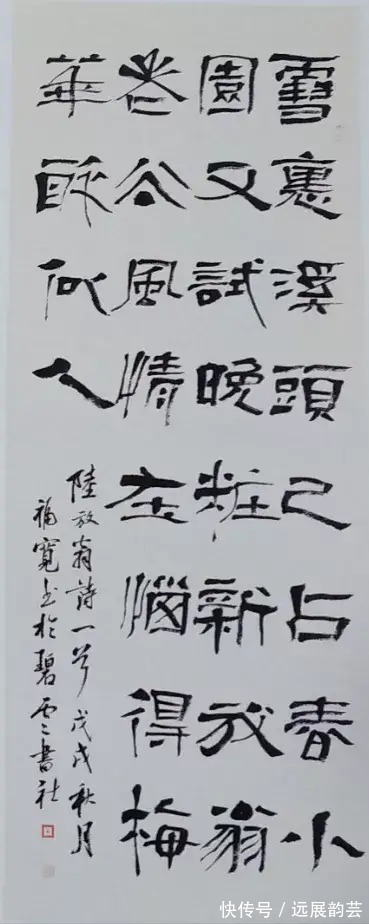 雪裏溪頭已占春小
園又試晚粧新放翁
老去風情在惱得梅
華醉似人
陸放翁詩一首戊戌秋月
福寬書於碧雲書社
快传号/远展韵芸